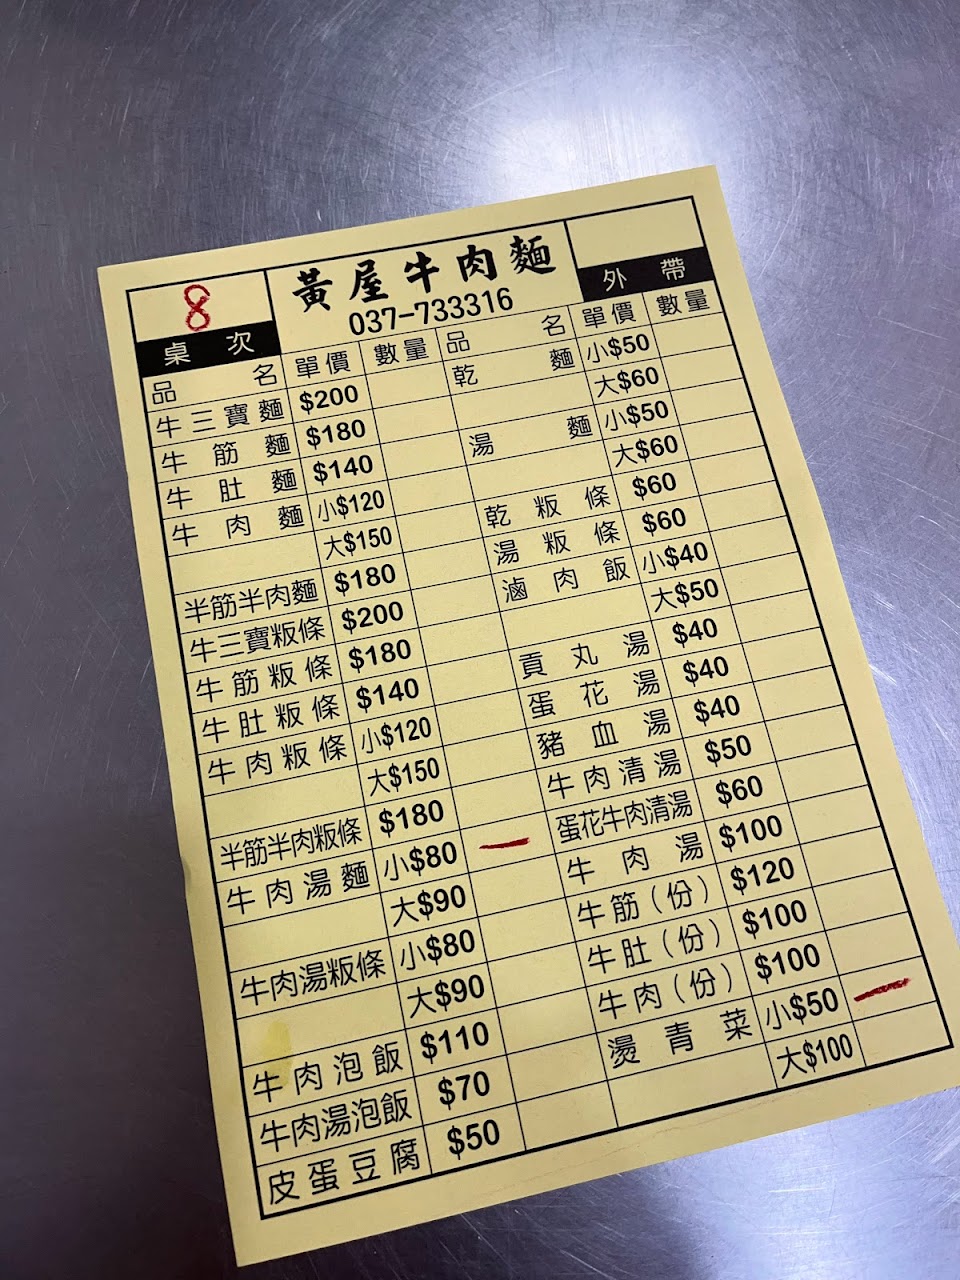 8
桌次
黃屋牛肉麵
037-733316
外帶
品名 單價 數量 品名 單價 數量
牛三寶麵 $200
牛筋麵 $180
牛肚麵 $140
牛肉麵 小$120
大$150
半筋半肉麵 $180
牛三寶粄條 $200
牛筋粄條 $180
牛肚粄條 $140
牛肉粄條 小$120
大$150
半筋半肉粄條 $180
牛肉湯麵 小$80 一
大$90
牛肉湯粄條 小$80
大$90
牛肉泡飯 $110
牛肉湯泡飯 $70
皮蛋豆腐 $50
乾麵 小$50
大$60
湯麵 小$50
大$60
乾粄條 $60
湯粄條 $60
滷肉飯 小$40
大$50
貢丸湯 $40
蛋花湯 $40
豬血湯 $40
牛肉清湯 $50
蛋花牛肉清湯 $60
牛肉湯 $100
牛筋(份) $120
牛肚(份) $100
牛肉(份) $100
燙青菜 小$50 一
大$100